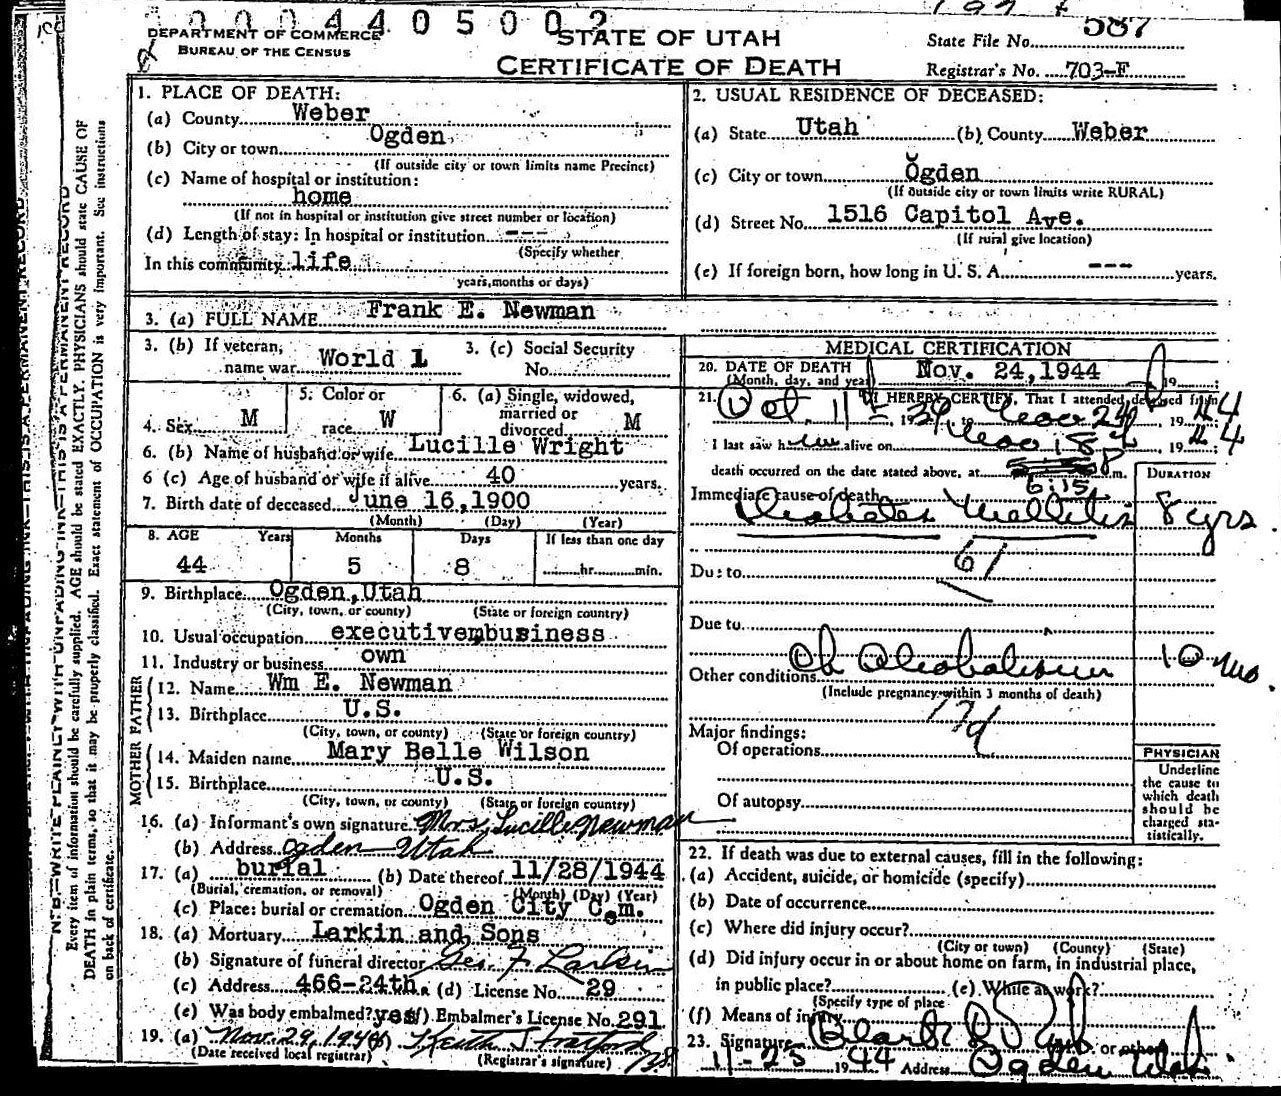 0004405002
DEPARTMENT OF COMMERCE
BUREAU OF THE CENSUS
STATE OF UTAH
CERTIFICATE OF DEATH
State File No. 587
Registrar's No. 703-F
1. PLACE OF DEATH:
(a) County Weber
(b) City or town Ogden
(If outside city or town limits name Precinct)
(c) Name of hospital or institution:
home
(If not in hospital or institution give street number or location)
(d) Length of stay: In hospital or institution ---
(Specify whether
In this community life
years, months or days)
2. USUAL RESIDENCE OF DECEASED:
(a) State Utah (b) County Weber
(c) City or town Ogden
(If outside city or town limits write RURAL)
(d) Street No. 1516 Capitol Ave.
(If rural give location)
(e) If foreign born, how long in U. S. A. --- years.
3. (a) FULL NAME Frank E. Newman
3. (b) If veteran, name war World 1
3. (c) Social Security No.
4. Sex M
5. Color or race W
6. (a) Single, widowed, married or divorced M
6. (b) Name of husband or wife Lucille Wright
6 (c) Age of husband or wife if alive 40 years.
7. Birth date of deceased June 16,1900
(Month) (Day) (Year)
8. AGE Years Months Days If less than one day
44 5 8 hr. min.
9. Birthplace Ogden,Utah
(City, town, or county) (State or foreign country)
10. Usual occupation executive business
11. Industry or business own
FATHER
12. Name Wm E. Newman
13. Birthplace U.S.
(City, town, or county) (State or foreign country)
MOTHER
14. Maiden name Mary Belle Wilson
15. Birthplace U.S.
(City, town, or county) (State or foreign country)
16. (a) Informant's own signature Mrs. Lucille Newman
(b) Address Ogden Utah
17. (a) burial (b) Date thereof 11/28/1944
(Burial, cremation, or removal) (Month) (Day) (Year)
(c) Place: burial or cremation Ogden City Cem.
18. (a) Mortuary Larkin and Sons
(b) Signature of funeral director Geo. F Larkin
(c) Address 466-24th. (d) License No. 29
(e) Was body embalmed? yes (f) Embalmer's License No. 291
19. (a) Nov. 29, 1944 Keith
(Date received local registrar) (Registrar's signature)
MEDICAL CERTIFICATION
20. DATE OF DEATH Nov. 24,1944 19
(Month, day, and year)
21. I HEREBY CERTIFY, That I attended deceased from
Oct. 11th 1939 to Nov 24 1944
I last saw him alive on Nov 18th 1944
death occurred on the date stated above, at 6:15 P m.
DURATION
Immediate cause of death
Diabetes Mellitis 8 yrs
61
Due to
Due to
Other conditions Ch Alcoholism 10 mo.
(Include pregnancy within 3 months of death)
77d
Major findings:
Of operations
Of autopsy
PHYSICIAN
Underline
the cause to
which death
should be
charged sta-
tistically.
22. If death was due to external causes, fill in the following:
(a) Accident, suicide, or homicide (specify)
(b) Date of occurrence
(c) Where did injury occur?
(City or town) (County) (State)
(d) Did injury occur in or about home on farm, in industrial place,
in public place? (e) While at work?
(Specify type of place
(f) Means of injury
23. Signature Clark M.D. or other
11-25 1944 Address Ogden Utah
N. B.—WRITE PLAINLY WITH UNFADING INK—THIS IS A PERMANENT RECORD
Every item of information should be carefully supplied. AGE should be stated EXACTLY. PHYSICIANS should state CAUSE OF
DEATH in plain terms, so that it may be properly classified. Exact statement of OCCUPATION is very important. See instructions
on back of certificate.